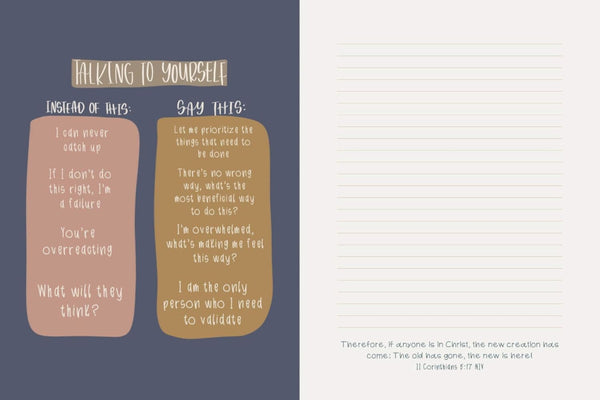 TALKING TO YOURSELF
INSTEAD OF THIS:
I can never
catch up
If I don't do
this right, I'm
a failure
You're
overreacting
What will they
think?
SAY THIS:
Let me prioritize the
things that need to
be done
There's no wrong
way, what's the
most beneficial way
to do this?
I'm overwhelmed,
what's making me feel
this way?
I am the only
person who I need
to validate
Therefore, if anyone is in Christ, the new creation has
come: The old has gone, the new is here!
II Corinthians 5:17 NIV